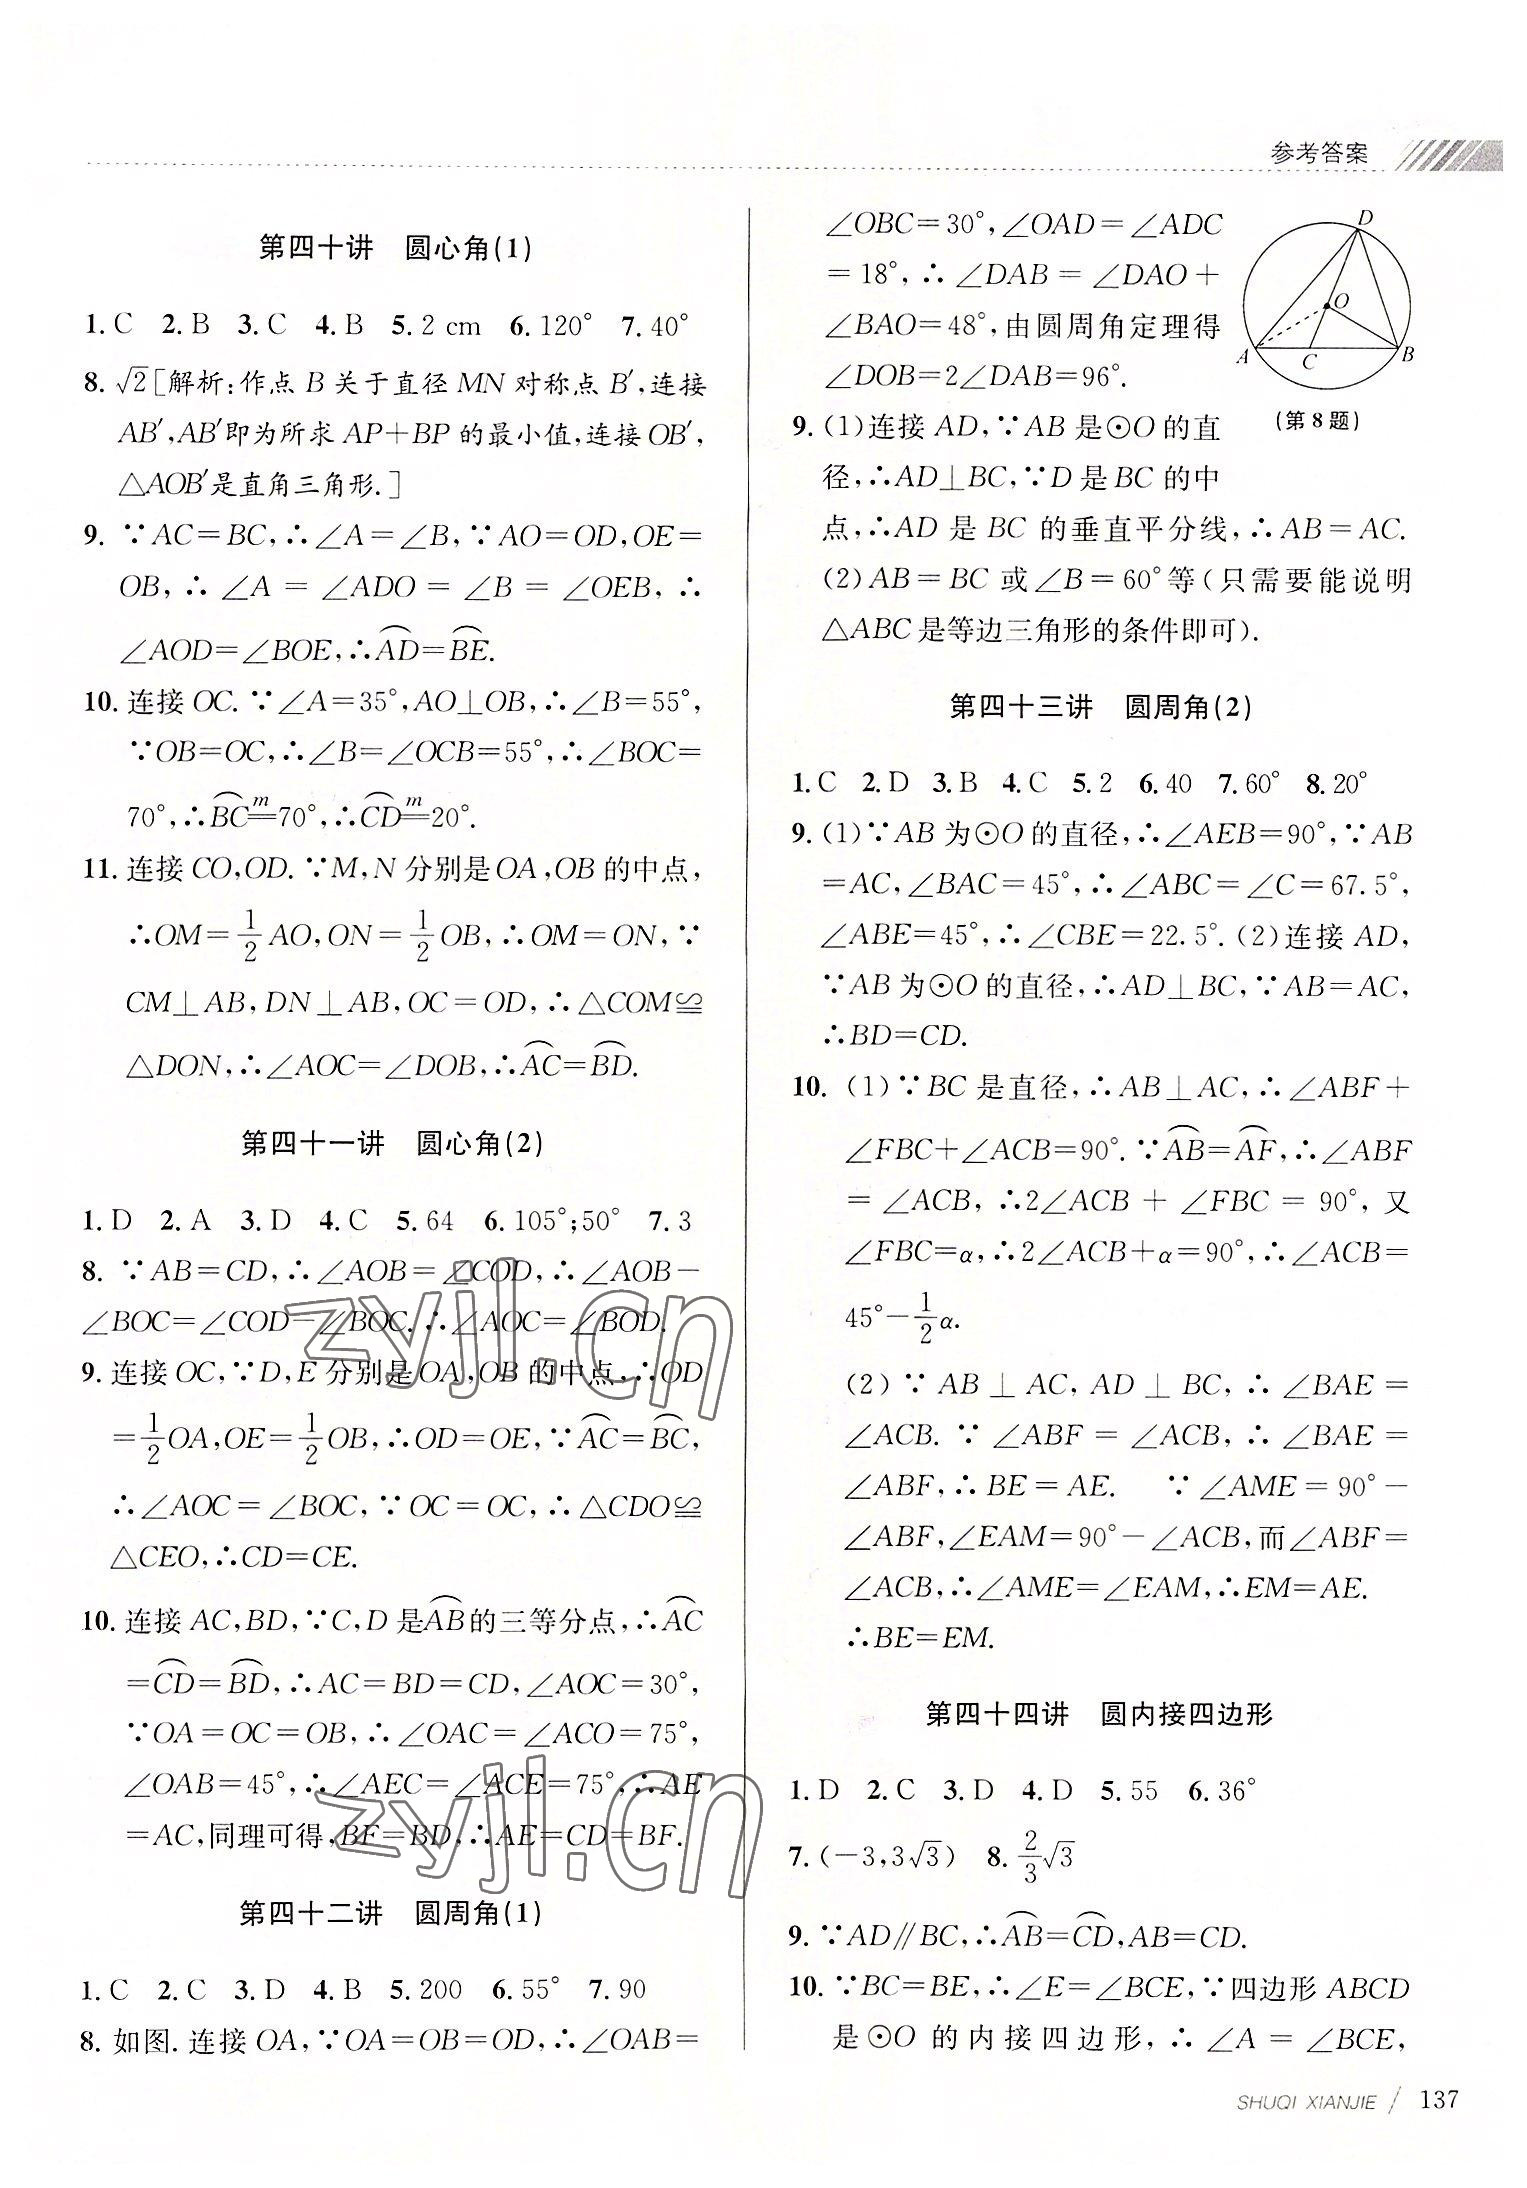 参考答案
第四十讲 圆心角(1)
1. C 2. B 3. C 4. B 5. 2 cm 6. 120° 7. 40°
8. √2[解析:作点 B 关于直径 MN 对称点 B′,连接
AB′,AB′即为所求 AP+BP 的最小值,连接 OB′,
△AOB′是直角三角形.]
9. ∵AC=BC,∴∠A=∠B,∵AO=OD,OE=
OB,∴∠A=∠ADO=∠B=∠OEB,∴
∠AOD=∠BOE,∴⌒AD=⌒BE.
10. 连接 OC. ∵∠A=35°,AO⊥OB,∴∠B=55°,
∵OB=OC,∴∠B=∠OCB=55°,∴∠BOC=
70°,∴⌒BC m=70°,∴⌒CD m=20°.
11. 连接 CO,OD. ∵M,N 分别是 OA,OB 的中点,
∴OM=1/2 AO,ON=1/2 OB,∴OM=ON,∵
CM⊥AB,DN⊥AB,OC=OD,∴△COM≌
△DON,∴∠AOC=∠DOB,∴⌒AC=⌒BD.
第四十一讲 圆心角(2)
1. D 2. A 3. D 4. C 5. 64 6. 105°;50° 7. 3
8. ∵AB=CD,∴∠AOB=∠COD,∴∠AOB-
∠BOC=∠COD-∠BOC.∴∠AOC=∠BOD.
9. 连接 OC,∵D,E 分别是 OA,OB 的中点,∴OD
=1/2 OA,OE=1/2 OB,∴OD=OE,∵⌒AC=⌒BC,
∴∠AOC=∠BOC,∵OC=OC,∴△CDO≌
△CEO,∴CD=CE.
10. 连接 AC,BD,∵C,D 是⌒AB的三等分点,∴⌒AC
=⌒CD=⌒BD,∴AC=BD=CD,∠AOC=30°,
∵OA=OC=OB,∴∠OAC=∠ACO=75°,
∠OAB=45°,∴∠AEC=∠ACE=75°,∴AE
=AC,同理可得,BF=BD,∴AE=CD=BF.
第四十二讲 圆周角(1)
1. C 2. C 3. D 4. B 5. 200 6. 55° 7. 90
8. 如图. 连接 OA,∵OA=OB=OD,∴∠OAB=
∠OBC=30°,∠OAD=∠ADC
=18°,∴∠DAB=∠DAO+
∠BAO=48°,由圆周角定理得
∠DOB=2∠DAB=96°.
D
O
A
C
B
(第 8 题)
9. (1)连接 AD,∵AB 是⊙O 的直
径,∴AD⊥BC,∵D 是 BC 的中
点,∴AD 是 BC 的垂直平分线,∴AB=AC.
(2)AB=BC 或∠B=60°等(只需要能说明
△ABC 是等边三角形的条件即可).
第四十三讲 圆周角(2)
1. C 2. D 3. B 4. C 5. 2 6. 40 7. 60° 8. 20°
9. (1)∵AB 为⊙O 的直径,∴∠AEB=90°,∵AB
=AC,∠BAC=45°,∴∠ABC=∠C=67.5°,
∠ABE=45°,∴∠CBE=22.5°.(2)连接 AD,
∵AB 为⊙O 的直径,∴AD⊥BC,∵AB=AC,
∴BD=CD.
10. (1)∵BC 是直径,∴AB⊥AC,∴∠ABF+
∠FBC+∠ACB=90°.∵⌒AB=⌒AF,∴∠ABF
=∠ACB,∴2∠ACB+∠FBC=90°,又
∠FBC=α,∴2∠ACB+α=90°,∴∠ACB=
45°-1/2 α.
(2)∵AB⊥AC,AD⊥BC,∴∠BAE=
∠ACB. ∵∠ABF=∠ACB,∴∠BAE=
∠ABF,∴BE=AE. ∵∠AME=90°-
∠ABF,∠EAM=90°-∠ACB,而∠ABF=
∠ACB,∴∠AME=∠EAM,∴EM=AE.
∴BE=EM.
第四十四讲 圆内接四边形
1. D 2. C 3. D 4. D 5. 55 6. 36°
7. (-3,3√3) 8. 2/3 √3
9. ∵AD∥BC,∴⌒AB=⌒CD,AB=CD.
10. ∵BC=BE,∴∠E=∠BCE,∵四边形 ABCD
是⊙O 的内接四边形,∴∠A=∠BCE,
SHUQI XIANJIE / 137
zyjl.cn
zyjl.cn